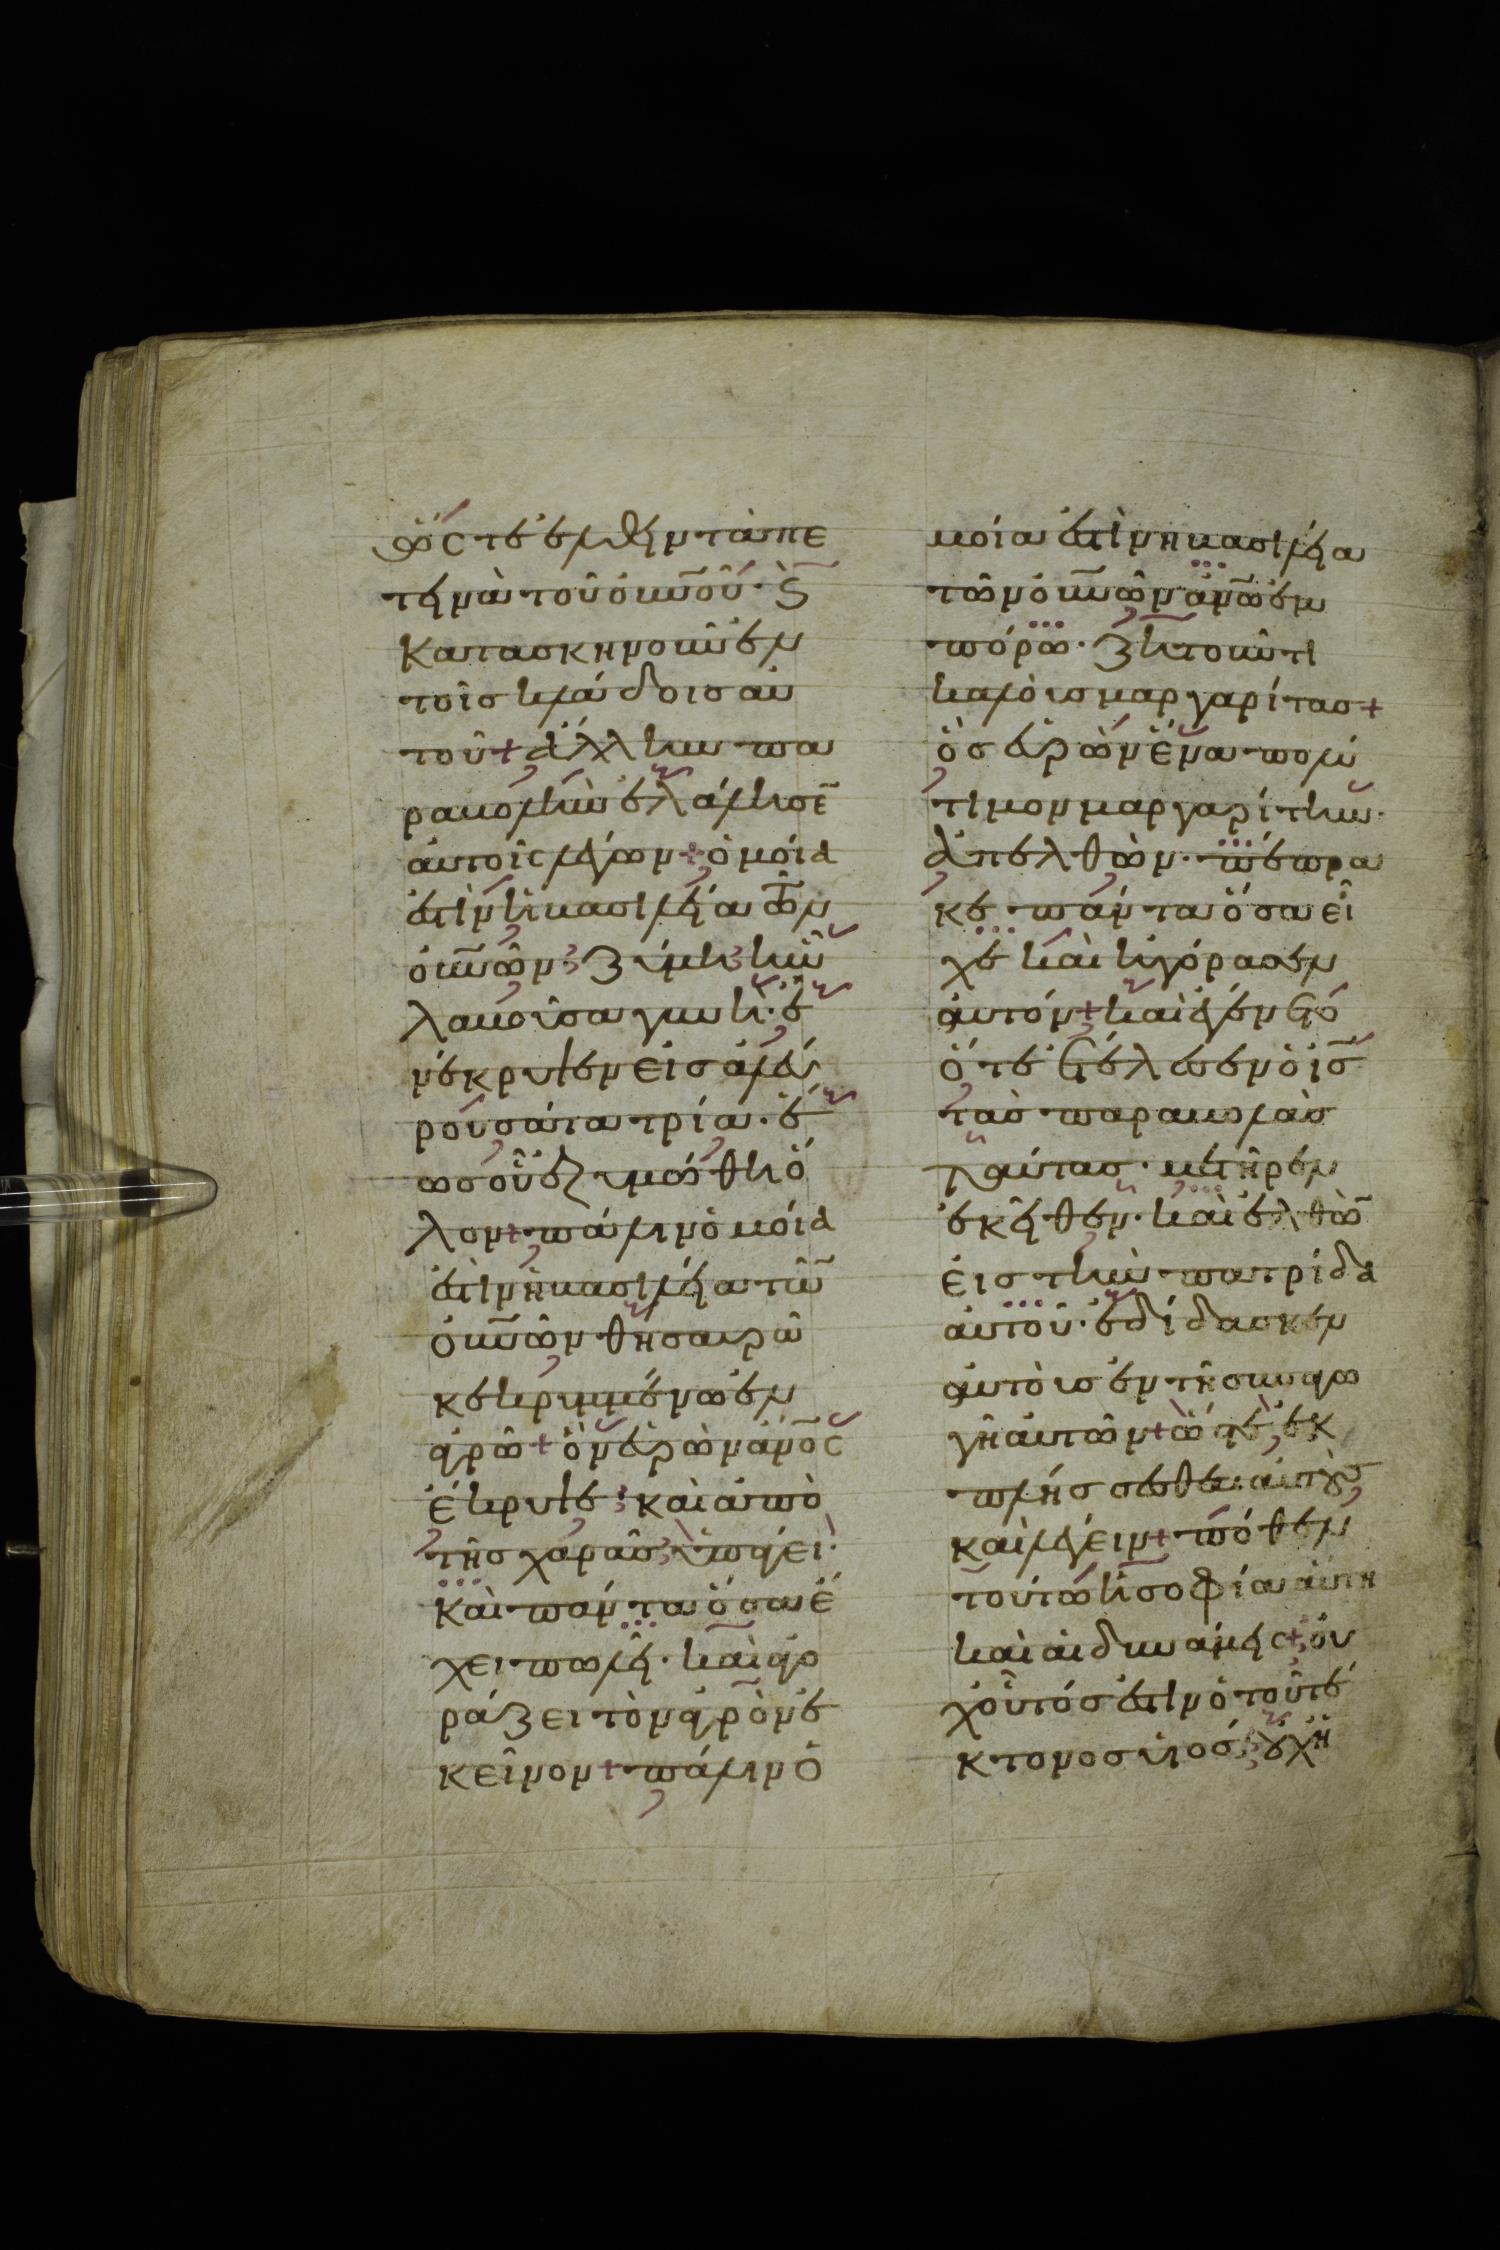 ὥστε ἐλθεῖν τὰ πε
τεινὰ τοῦ οὐν̅οῦ· ϗ
κατασκηνοῦν ἐν
τοῖς κλάδοις αὐ
τοῦ+ ἄλλην πα
ραβολὴν ἐλάλησε̅
αὐτοῖς λέγων+ ὁμοία
ἐστὶν ἡ βασιλεία τῶν
οὐν̅ῶν ζύμη ἣν
λαβοῦσα γυνὴ· ἐ
νέκρυψεν εἰς ἀλεύ
ρου σάτα τρία· ἕ
ως οὗ ἐζυμώθη ὅ
λον+ πάλιν ὁμοία
ἐστὶν ἡ βασιλεία τῶ̅
οὐν̅ῶν θησαυρῶ
κεκρυμμένω ἐν
ἀγρῶ+ ὃν εὑρὼν ἄνο̅ς
ἔκρυψε· καὶ ἀπὸ
τῆς χαρᾶς ὑπάγει·
καὶ πάντα ὅσα ἔ
χει πωλεῖ· καὶ ἀγο
ράζει τὸν ἀγρὸν ἐ
κεῖνον+ πάλιν ὁ
μοία ἐστὶν ἡ βασιλεία
τῶν οὐν̅ῶν ἀν̅ῶ ἐμ
πόρω· ζητοῦντι
καλοὺς μαργαρίτας+
ὃς εὑρὼν ἕνα πολύ
τιμον μαργαρίτην·
ἀπελθὼν· πέπρα
κε πάντα ὅσα εἶ
χε καὶ ἠγόρασεν
αὐτόν+ καὶ ἐγένετο
ὅτε ἐτέλεσεν ὁ ις̅
τὰς παραβολὰς
ταύτας· μετῆρεν
ἐκεῖθεν· καὶ ἐλθὼ̅
εἰς τὴν πατρίδα
αὐτοῦ· ἐδίδασκεν
αὐτοὺς ἐν τῆ συναγω
γῆ αὐτῶν+ ὥστε ἐκ
πλήσσεσθαι αὐτοὺς
καὶ λέγειν+ πόθεν
τούτω ἡ σοφία αὕτη
καὶ αἱ δυνάμεις+ οὐ
χ οὗτός ἐστιν ὁ τοῦ τέ
κτονος υἱός; οὐχ ἡ